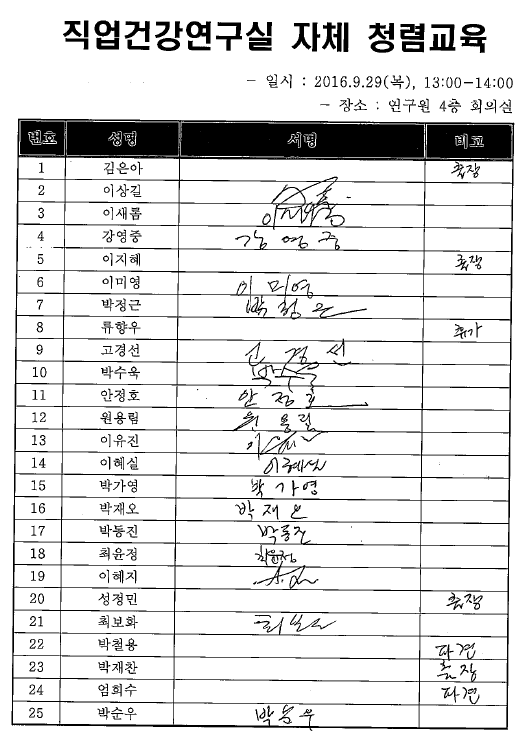 직업건강연구실 자체 청렴교육
- 일시 : 2016.9.29(목), 13:00-14:00
- 장소 : 연구원 4층 회의실
번호 성명 서명 비고
1 김은아 출장
2 이상길
3 이새롬 이새롬
4 강영중 강영중
5 이지혜 출장
6 이미영 이미영
7 박정근 박정근
8 류향우 휴가
9 고경선 고경선
10 박수욱
11 안정호 안정호
12 원용림 원용림
13 이유진
14 이혜실 이혜실
15 박가영 박가영
16 박재오 박재오
17 박동진 박동진
18 최윤정 최윤정
19 이혜지
20 성정민 출장
21 최보화
22 박철용 파견
23 박재찬 출장
24 엄희수 파견
25 박순우 박순우